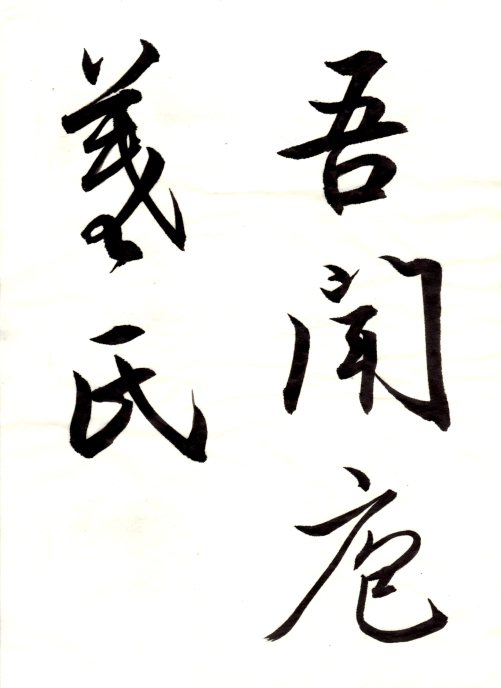 吾闻庖
羲氏